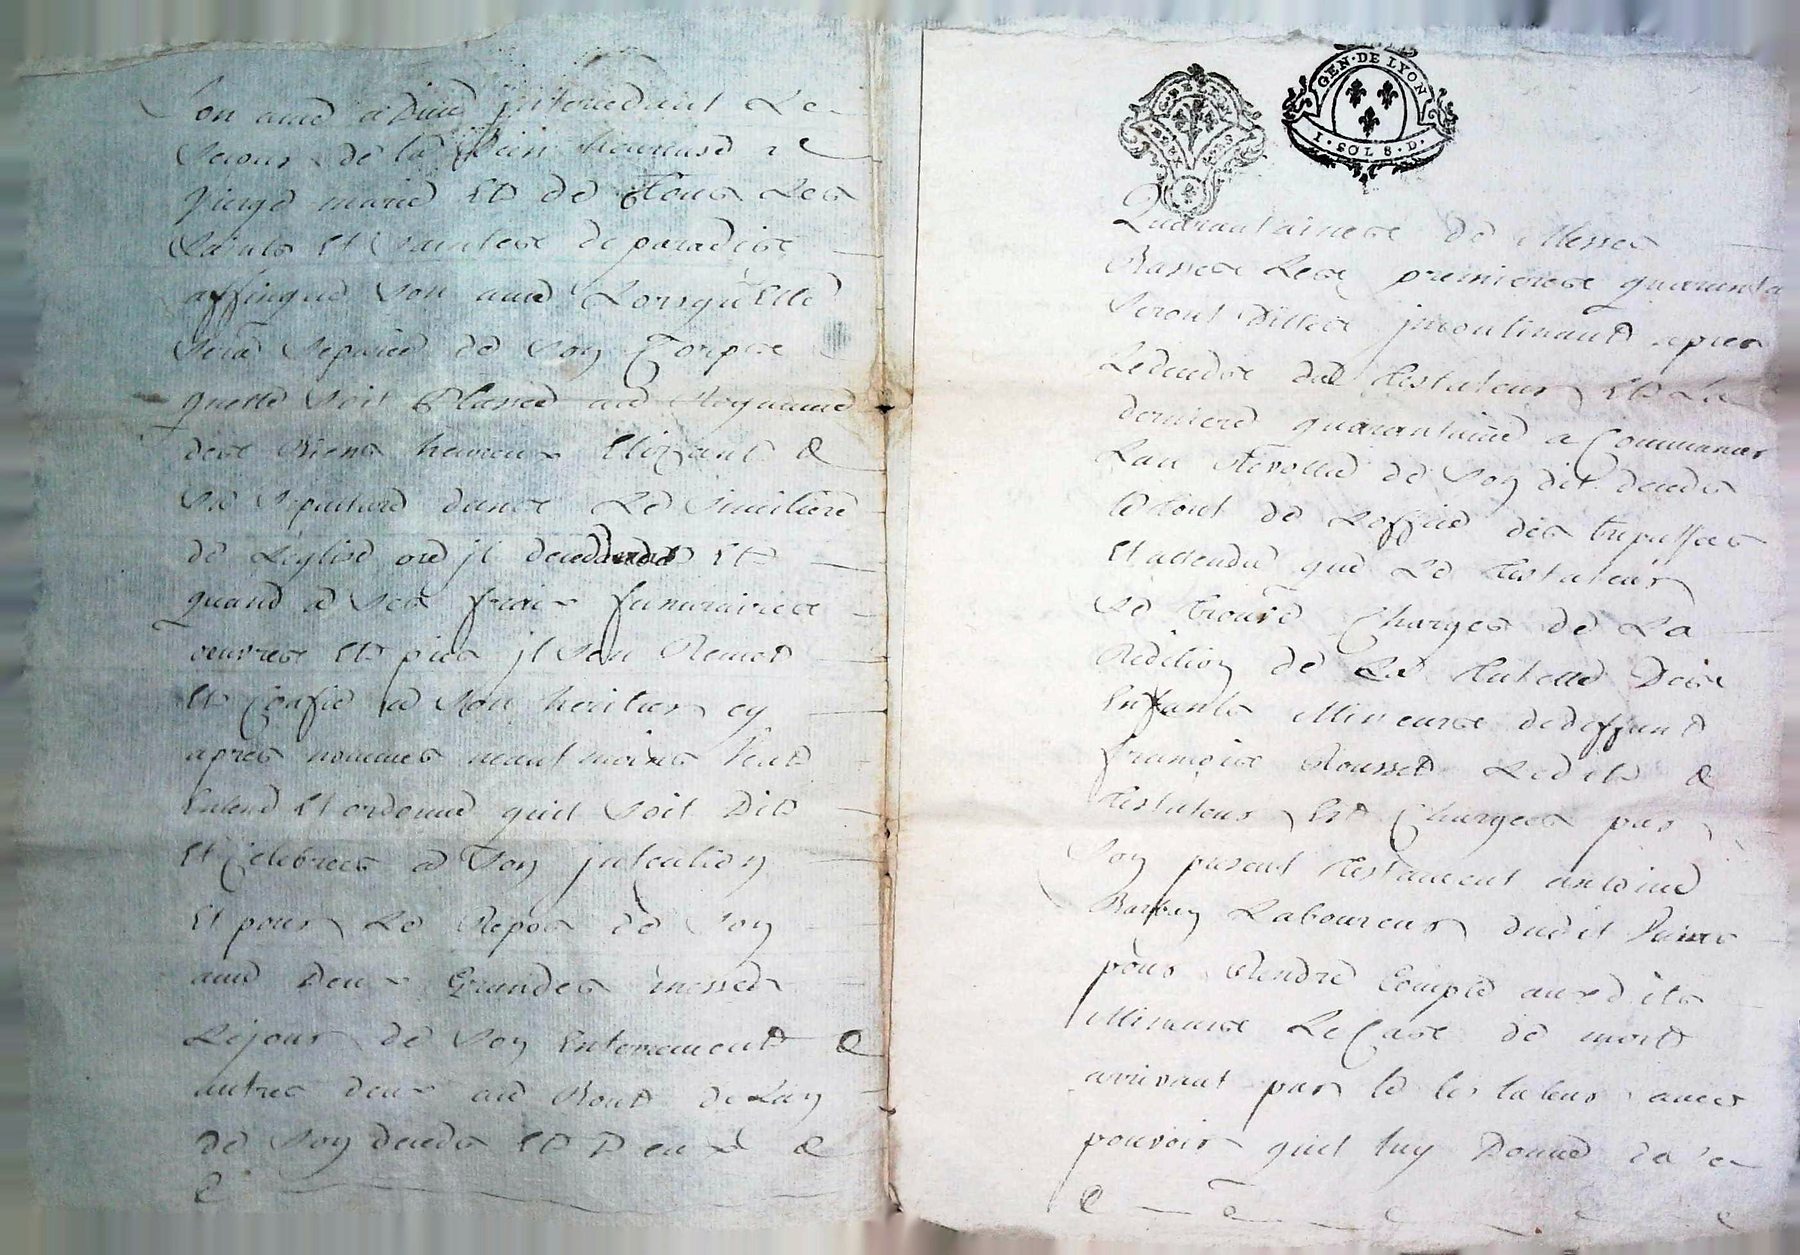 Son ame a Dieu jntercedant Le
Secour de la Bien heureuse
Vierge marie Et de Tous Les
Saints Et Saintese de paradise
affinque Son ame Lorsqu'Elle
Sera Separee de Soy Corpse
quelle Soit Plassee au Royaume
dese Biens heureux Elizant
Sa Sepulture danse Le Simitiere
de Leglise ou jl decedera Et
quand a Ses fraix funerairese
oeuvrese Et pies jl Sen Remet
Et Confie a Son heritier cy
apres nommes neantmoins Veut
Entend Et ordonne quil Soit Dit
Et Celebrees a Soy jntention
Et pour Le Repos de Soy
ame Deux Grandes messes
Le jour de Soy Enterrement &
autres deux au Bout de Lay
de Soy deceds Et Deux
GEN·DE LYON
I·SOL 8·D·
Quarantainese de Messes
Bassese Lese premierese quarante
Seront Dittese jncontinant apres
Le decedse du Testateur Et La
derniere quarantaine a Commancer
Lan Revollue de Soy dit deceds
le tout de Loffice des trepasses
Et attendu que Le Testateur
Se trouve Charges de La
Redition de La Tutelle Dese
Enfants Mineurse de deffunt
françoise Rousset Ledit
Testateur Et Charges par
Soy present Testament antoine
Barbay Laboureur dudit
pour Rendre Compte auxdits
Mineurse Le Case de mort
arrivant par le testateur avec
pouvoir quil luy Donne de